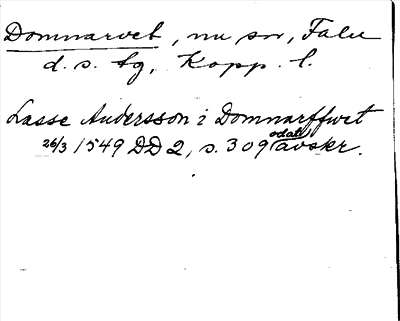 Domnarvet, nu sn, Falu
d. s. tg, Kopp. l.
Lasse Andersson i Domnarffwet
26/3 1549 DD 2, s. 309 odat avskr.